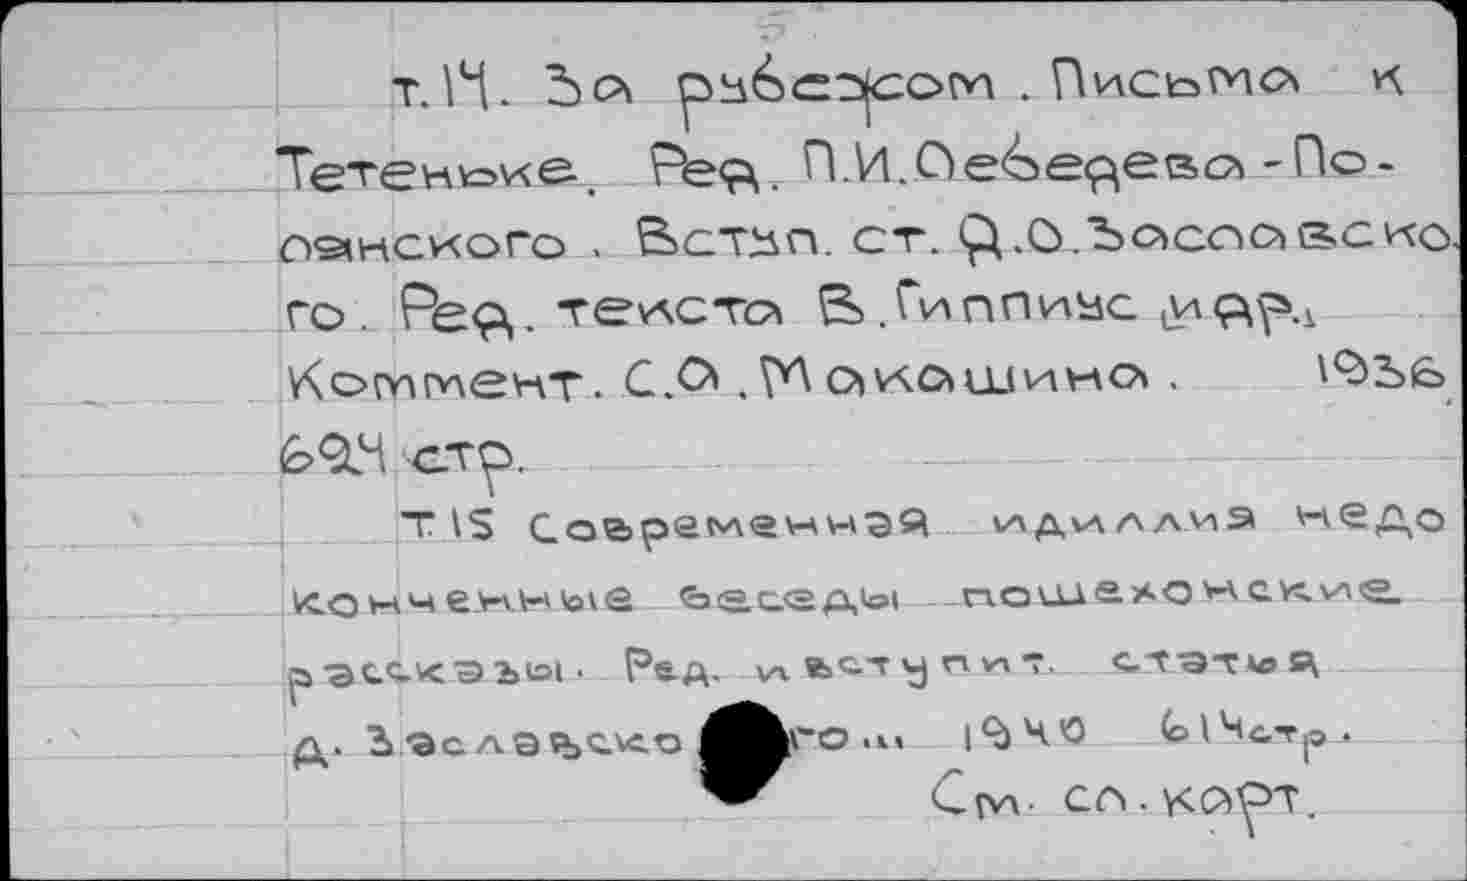 т.14. За рубежом. Письма к
Тетеньке. Ред. П.И.Лебедева-По-
лянского. Вступ. ст. Д.О.Заславско.
го. Ред. текста В.Гиппиус [и др.]
Коммент. С.А.Макашина. 1936
624 стр.
т.15 Современная идиллия недо
конченные беседы пошехонские
рассказы. Ред. и вступит. статья
Д. Заславского... 1940 614стр.
См. сл. карт.